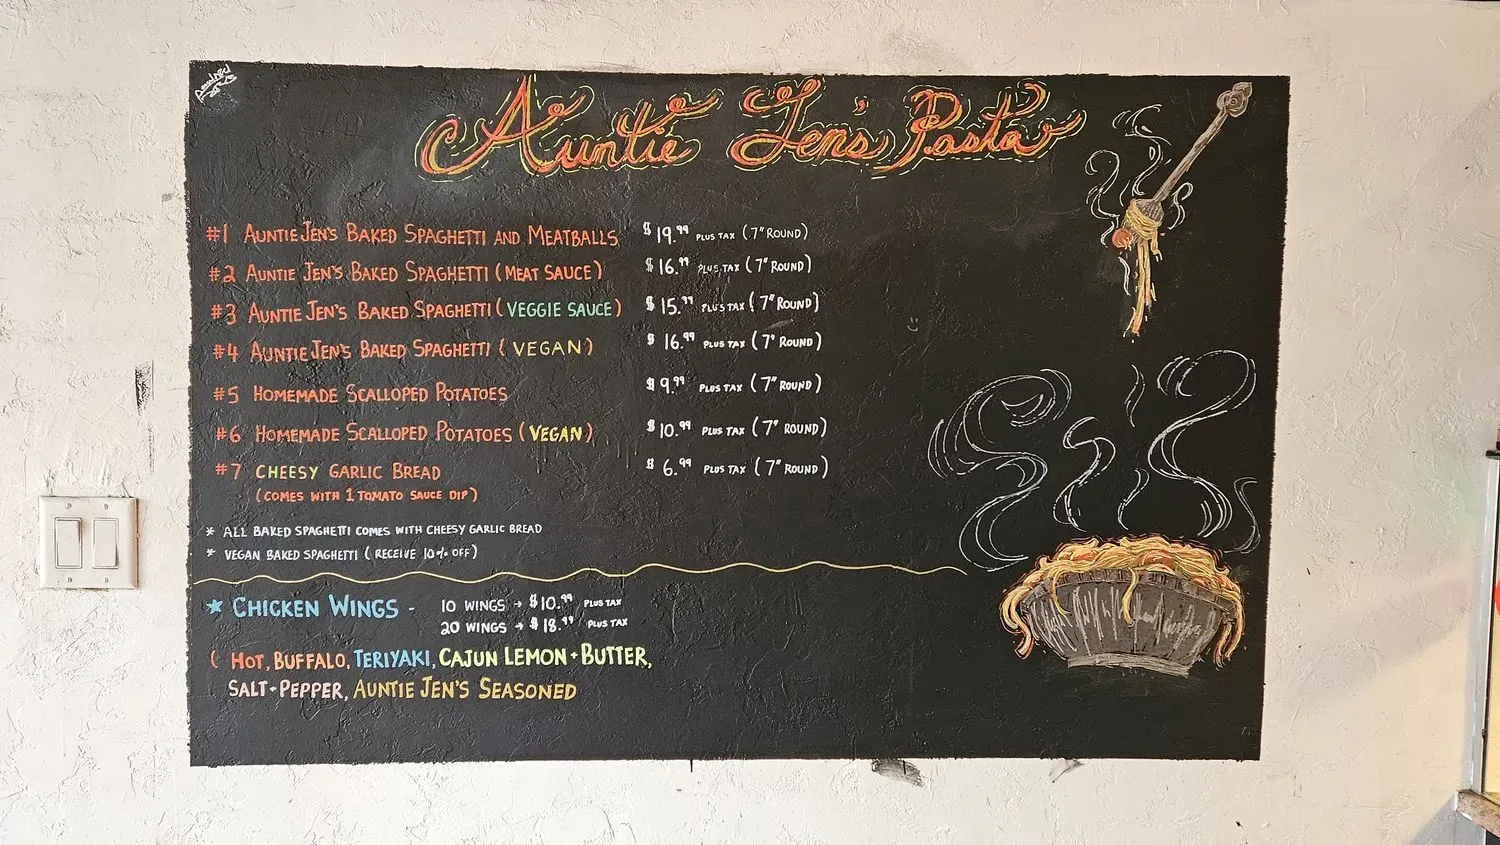 Auntie Jen's Pasta
#1 AUNTIE JEN'S BAKED SPAGHETTI AND MEATBALLS $19.99 PLUS TAX (7" ROUND)
#2 AUNTIE JEN'S BAKED SPAGHETTI (MEAT SAUCE) $16.99 PLUS TAX (7" ROUND)
#3 AUNTIE JEN'S BAKED SPAGHETTI (VEGGIE SAUCE) $15.99 PLUS TAX (7" ROUND)
#4 AUNTIE JEN'S BAKED SPAGHETTI (VEGAN) $16.99 PLUS TAX (7" ROUND)
#5 HOMEMADE SCALLOPED POTATOES $9.99 PLUS TAX (7" ROUND)
#6 HOMEMADE SCALLOPED POTATOES (VEGAN) $10.99 PLUS TAX (7" ROUND)
#7 CHEESY GARLIC BREAD $6.99 PLUS TAX (7" ROUND)
(COMES WITH 1 TOMATO SAUCE DIP)
* ALL BAKED SPAGHETTI COMES WITH CHEESY GARLIC BREAD
* VEGAN BAKED SPAGHETTI (RECEIVE 10% OFF)
★ CHICKEN WINGS - 10 WINGS → $10.99 PLUS TAX
20 WINGS → $18.99 PLUS TAX
( HOT, BUFFALO, TERIYAKI, CAJUN LEMON + BUTTER,
SALT + PEPPER, AUNTIE JEN'S SEASONED